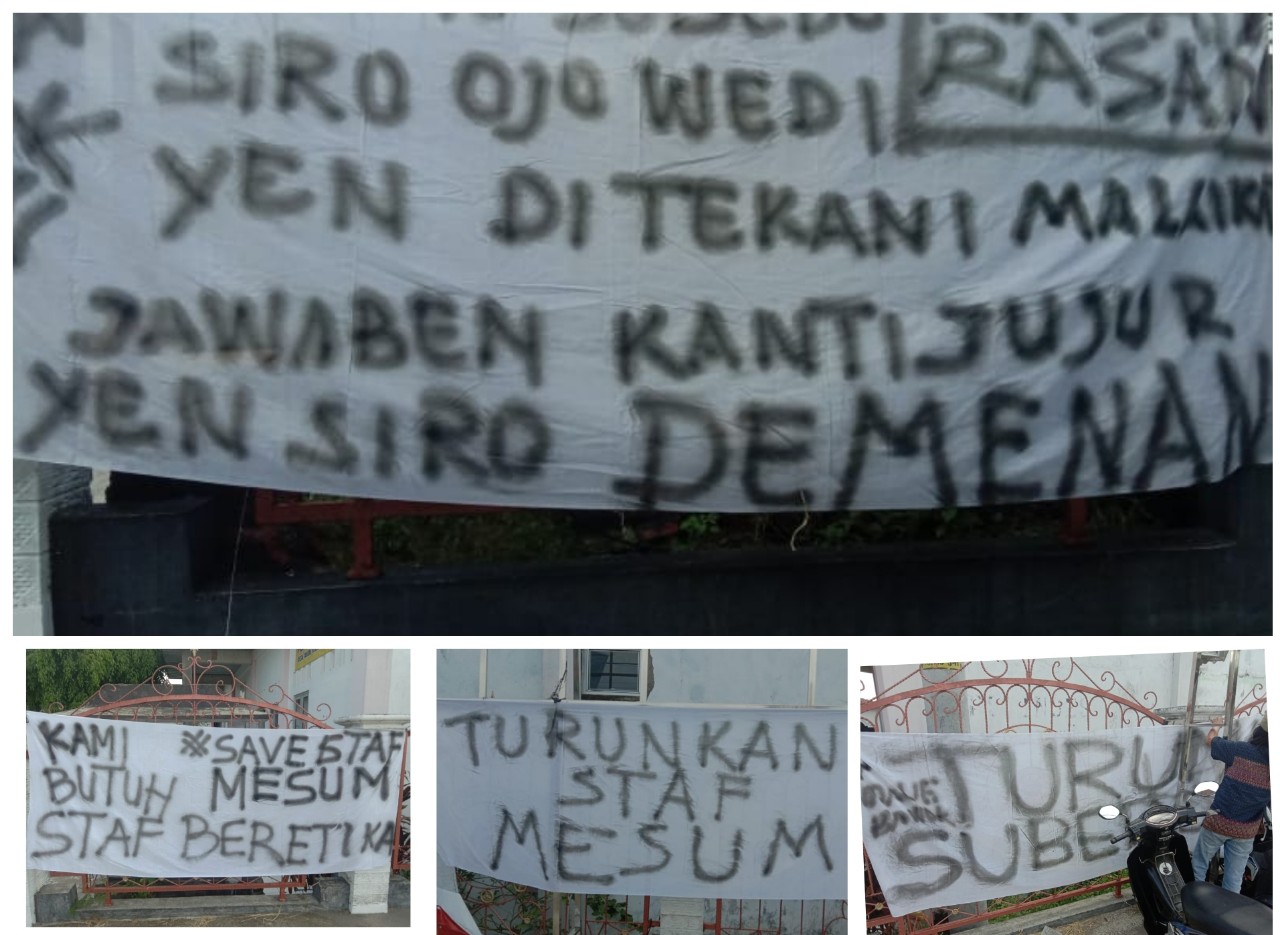 SIRO OJO WEDI
YEN DITEKANI
JAWABEN KANTI JUJUR
YEN SIRO DEMENAN
KAMI
BUTUH
STAF BERETIKA
※SAVE STAF
MESUM
TURUNKAN
STAF
MESUM
TURU